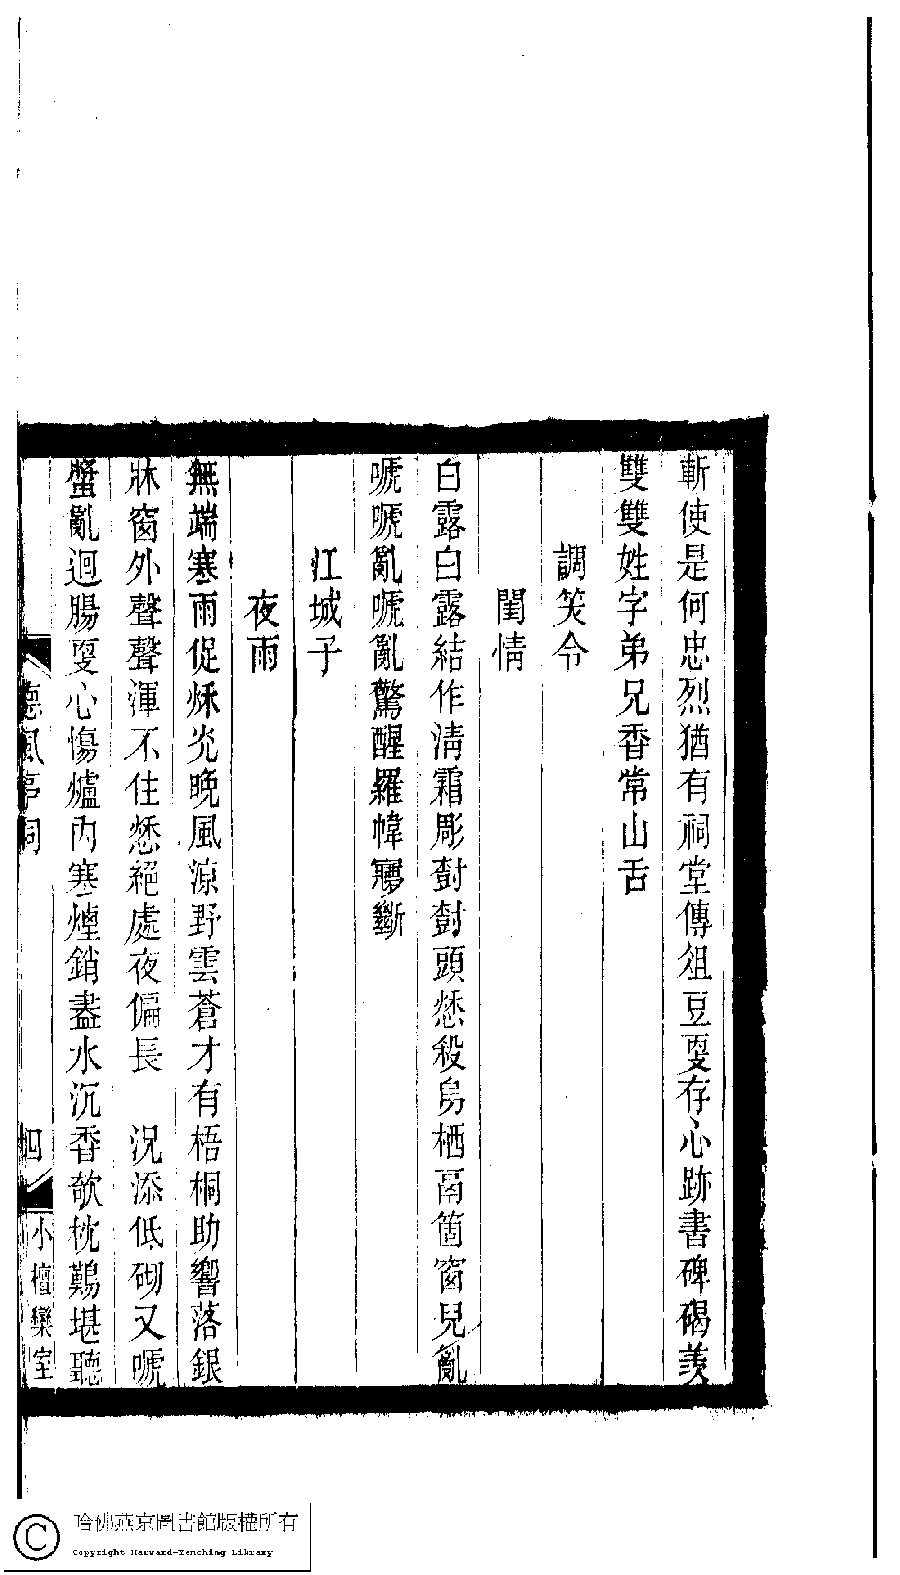 斬使是何忠烈猶有祠堂傳俎豆㪅存心跡書碑碣羨
雙雙姓字弟兄香常山舌
調笑令
閨情
白露白露結作淸霜彫尌尌頭愁殺烏栖鬲箇窗兒亂
嗁嗁亂嗁亂驚醒羅幃㝱斷
江城子
夜雨
無端寒雨促秌炎晚風涼野雲蒼才有梧桐助響落銀
牀窗外聲聲渾不住愁絕處夜偏長　況添低砌又嗁
螿亂迴腸㪅心傷爐內寒煙銷盡水沉香欹枕難堪聽
德風亭詞
四
小檀欒室
哈佛燕京圖書館版權所有
Copyright Harvard-Yenching Library